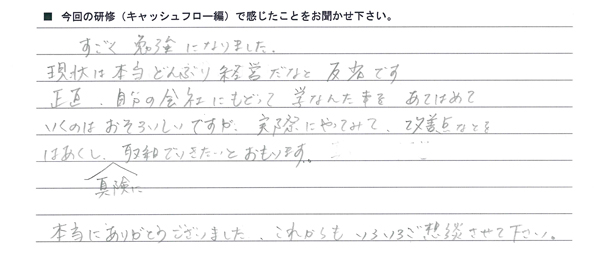 ■ 今回の研修（キャッシュフロー編）で感じたことをお聞かせ下さい。
すごく勉強になりました。
現状は本当どんぶり経営だなと反省です
正直、自分の会社にもどって学なんだ事をあてはめて
いくのはおそろしいですが、実際にやってみて、改善点などを
はあくし、取組でいきたいとおもいます。
真険に
本当にありがとうございました、これからもいろいろご想談させて下さい。